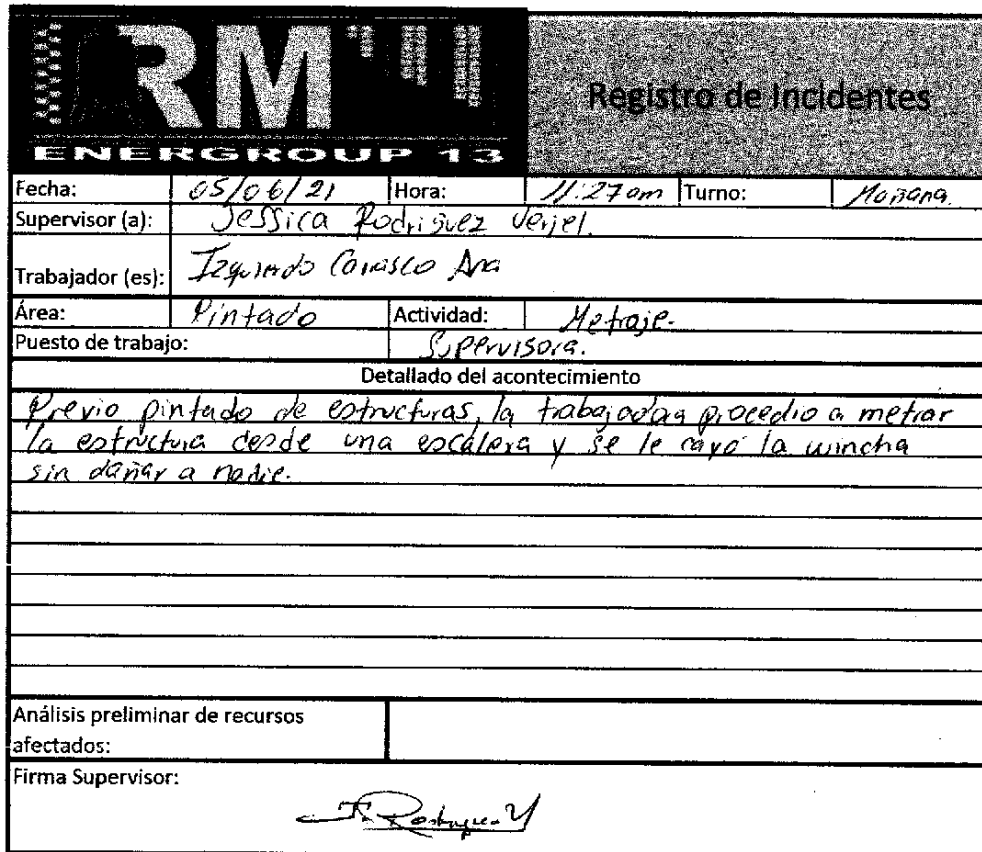 RM
ENERGROUP 13
Registro de Incidentes
Fecha: 05/06/21 Hora: 11:27am Turno: Mañana.
Supervisor (a): Jessica Rodriguez Verjel.
Trabajador (es): Izquierdo Carrasco Ana
Área: Pintado Actividad: Metraje.
Puesto de trabajo: Supervisora.
Detallado del acontecimiento
Previo pintado de estructuras, la trabajadora procedio a metrar
la estructura desde una escalera y se le cayó la wincha
sin dañar a nadie.
Análisis preliminar de recursos
afectados:
Firma Supervisor: